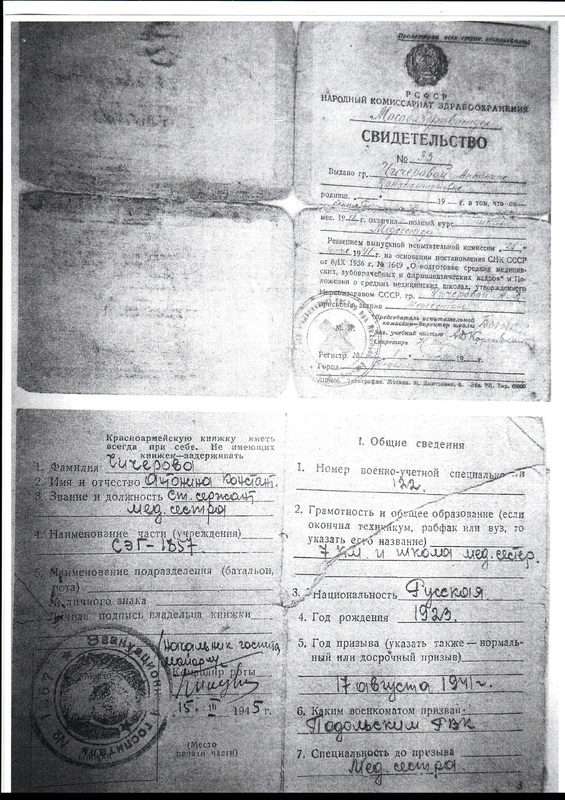 Пролетарии всех стран, соединяйтесь!
РСФСР
НАРОДНЫЙ КОМИССАРИАТ ЗДРАВООХРАНЕНИЯ
Мособлздравотдел
СВИДЕТЕЛЬСТВО
№ 33
Выдано гр. Чичеровой Антонине
Константиновне
родивш. 19 — г. в том, что он—
мес. 1941 г. окончил полный курс
Медсестер
Решением выпускной испытательной комиссии
1941 г. на основании постановления СНК СССР
от 8/IX 1936 г. № 1649 „О подготовке средних медицин-
ских, зубоврачебных и фармацевтических кадров" и По-
ложения о средних медицинских школах, утвержденного
Наркомздравом СССР, гр. Чичеровой А. К.
присвоено звание
Председатель испытательной
комиссии—директор школы
Зав. учебной частью
Секретарь
М. П.
Регистр. №
Город
Красноармейскую книжку иметь
всегда при себе. Не имеющих
книжек—задерживать
1. Фамилия Чичерова
2. Имя и отчество Антонина Констант.
3. Звание и должность Ст. сержант
мед. сестра
4. Наименование части (учреждения)
СЭГ-1857.
5. Наименование подразделения (батальон,
рота)
№ личного знака
Личная подпись владельца книжки
Начальник госпиталя
майор
Командир роты
15. III 1945 г.
(Место
печати части)
Эвакуационный госпиталь №
I. Общие сведения
1. Номер военно-учетной специальности
122.
2. Грамотность и общее образование (если
окончил техникум, рабфак или вуз, то
указать его название)
7 кл. и школа мед. сестер.
3. Национальность Русская.
4. Год рождения 1923.
5. Год призыва (указать также — нормаль-
ный или досрочный призыв)
17 августа 1941 г.
6. Каким военкоматом призван
Подольским РВК
7. Специальность до призыва
Мед. сестра.
3